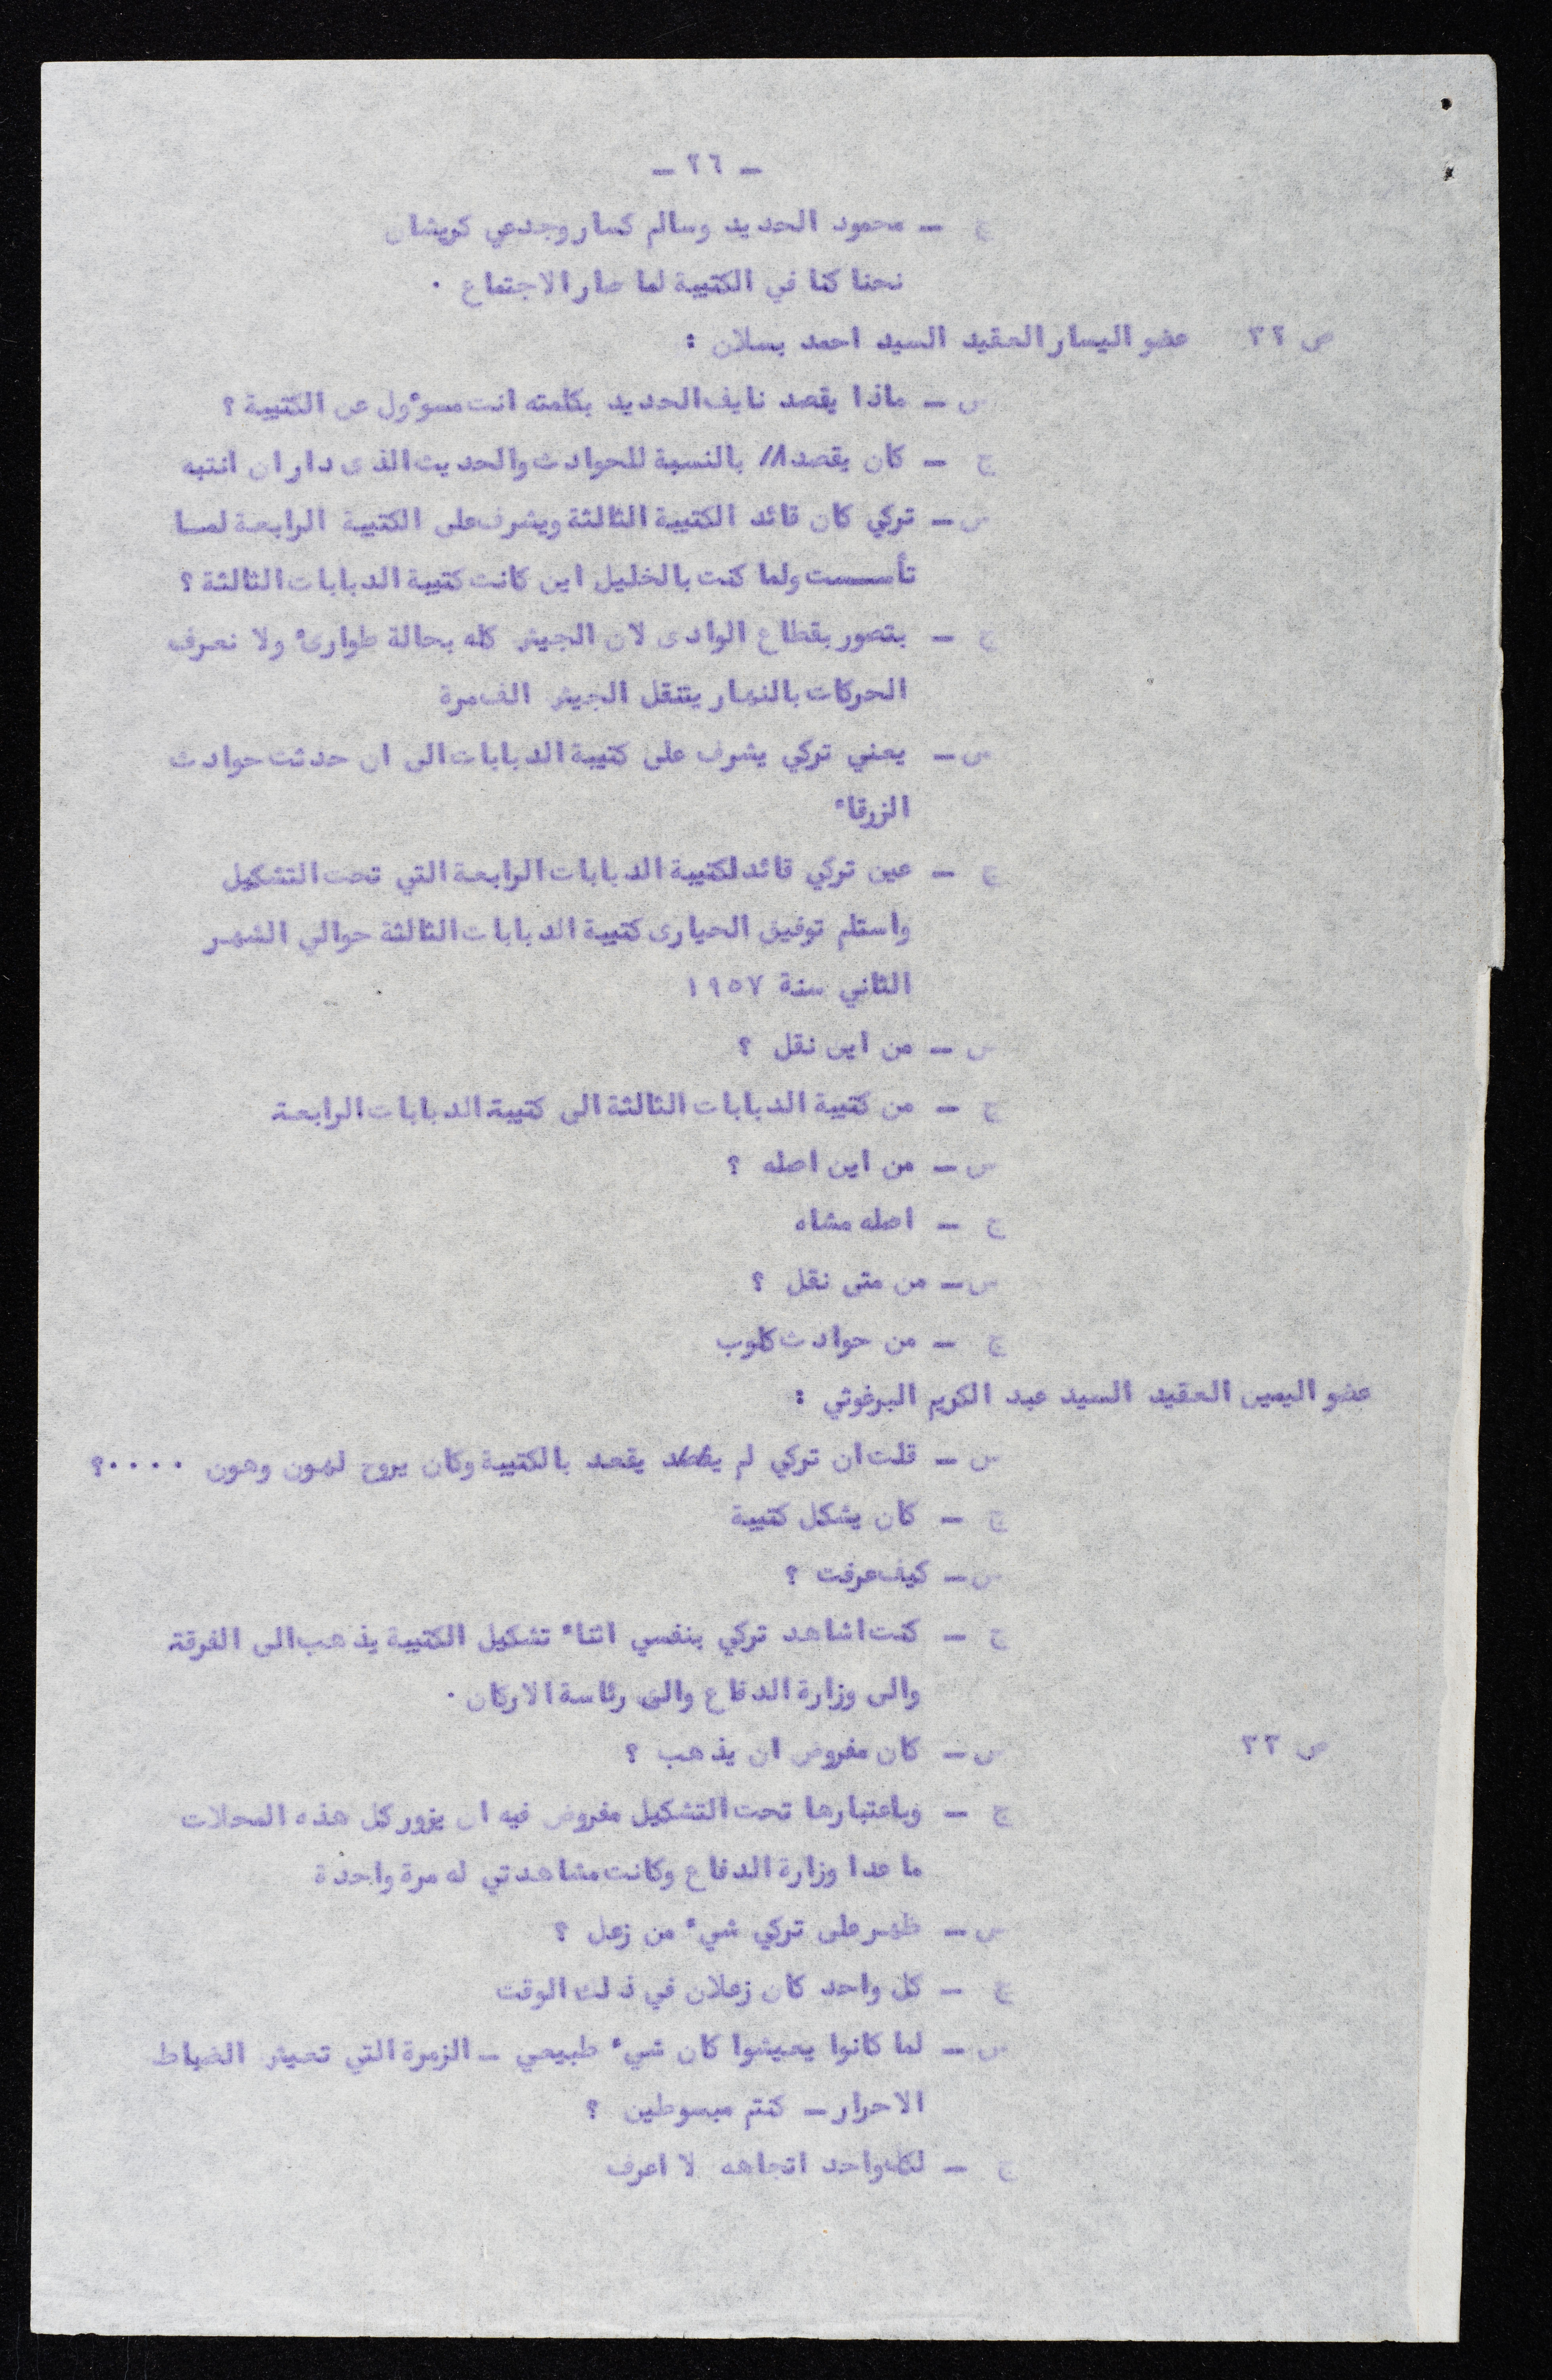 - ٢٦ -
ج - محمود الحديد وسالم كسار وجدعي كريشان
نحنا كنا في الكتيبة لما صار الاجتماع .
ص ٢٢ عضو اليسار العقيد السيد احمد بسلان :
س - ماذا يقصد نايف الحديد بكلمته انت مسوءول عن الكتيبة ؟
ج - كان يقصد بالنسبة للحوادث والحديث الذى دار ان انتبه
س - تركي كان قائد الكتيبة الثالثة ويشرف على الكتيبة الرابعة لما
تأسست ولما كنت بالخليل اين كانت كتيبة الدبابات الثالثة ؟
ج - بتصور بقطاع الوادى لان الجيش كله بحالة طوارئ ولا نعرف
الحركات بالنهار ينتقل الجيش الف مرة
س - يعني تركي يشرف على كتيبة الدبابات الى ان حدثت حوادث
الزرقاء
ج - عين تركي قائد لكتيبة الدبابات الرابعة التي تحت التشكيل
واستلم توفيق الحيارى كتيبة الدبابات الثالثة حوالي الشهر
الثاني سنة ١٩٥٧
س - من اين نقل ؟
ج - من كتيبة الدبابات الثالثة الى كتيبة الدبابات الرابعة
س - من اين اصله ؟
ج - اصله مشاه
س - من متى نقل ؟
ج - من حوادث كلوب
عضو اليمين العقيد السيد عبد الكريم البرغوثي :
س - قلت ان تركي لم يقعد بالكتيبة وكان يروح لهون وهون ....؟
ج - كان يشكل كتيبة
س - كيف عرفت ؟
ج - كنت اشاهد تركي بنفسي اثناء تشكيل الكتيبة يذهب الى الفرقة
والى وزارة الدفاع والى رئاسة الاركان .
ص ٢٣ س - كان مفروض ان يذهب ؟
ج - وباعتبارها تحت التشكيل مفروض فيه ان يزور كل هذه المحلات
ما عدا وزارة الدفاع وكانت مشاهدتي له مرة واحدة
س - ظهر على تركي شيء من زعل ؟
ج - كل واحد كان زعلان في ذلك الوقت
س - لما كانوا يعيشوا كان شيء طبيعي - الزمرة التي تعيش الضباط
الاحرار - كنتم مبسوطين ؟
ج - لكل واحد اتجاهه لا اعرف